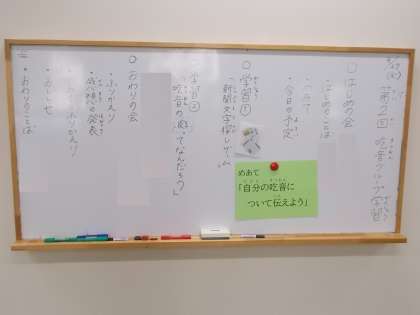 第2回 吃音グループ学習
○はじめの会
・はじめのことば
・今日の予定
○学習①
「新聞文字探しゲーム」
めあて
「自分の吃音に
ついて伝えよう」
学習②
「吃音の　ってなんだろう」
○おわりの会
・ふりかえり
・感想発表
ふりかえり
・おしらせ
・おわりのことば